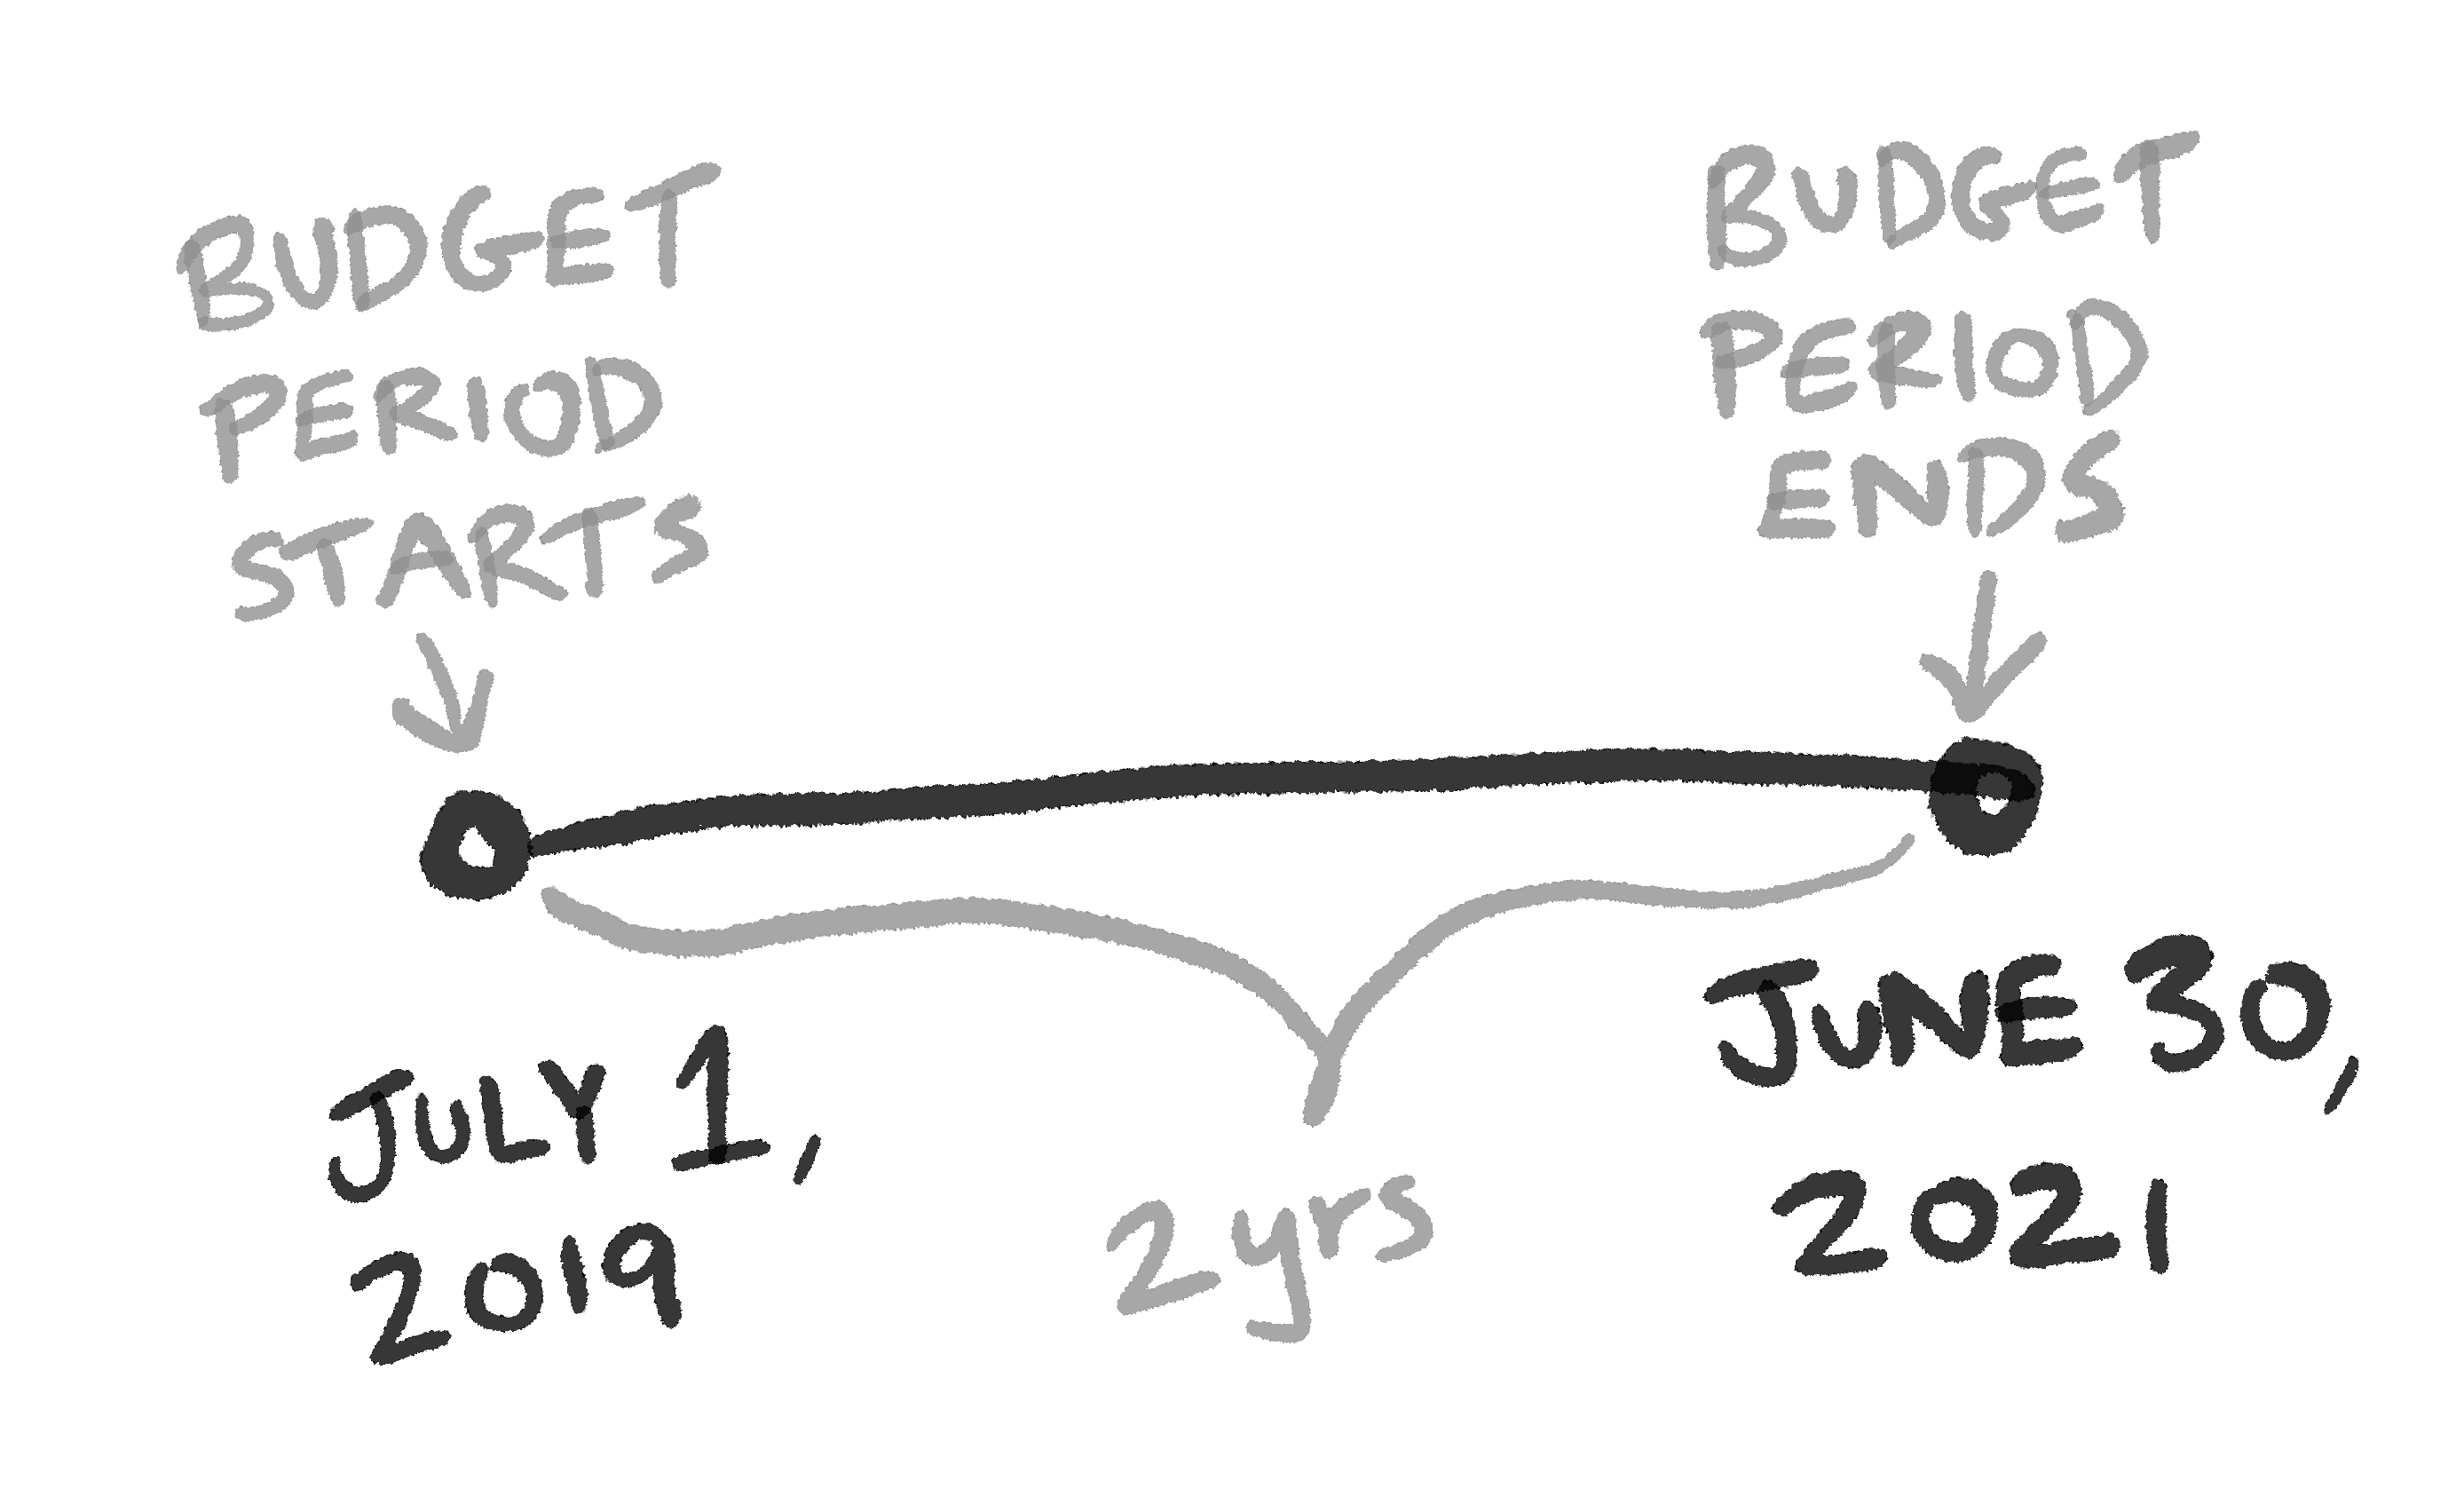 BUDGET
PERIOD
STARTS
BUDGET
PERIOD
ENDS
JULY 1,
2019
2 yrs
JUNE 30,
2021